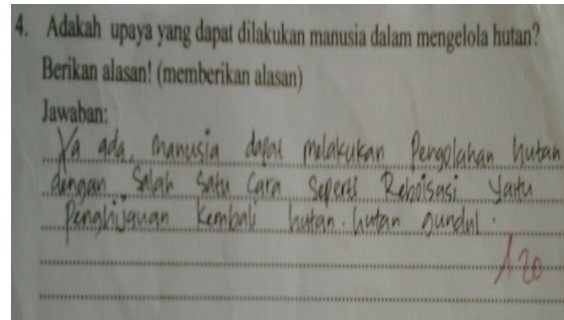 4. Adakah upaya yang dapat dilakukan manusia dalam mengelola hutan?
Berikan alasan! (memberikan alasan)
Jawaban:
Ya ada, manusia dapat melakukan Pengolahan hutan
dengan Salah Satu Cara Seperti Reboisasi yaitu
Penghijauan Kembali hutan-hutan gundul.
20